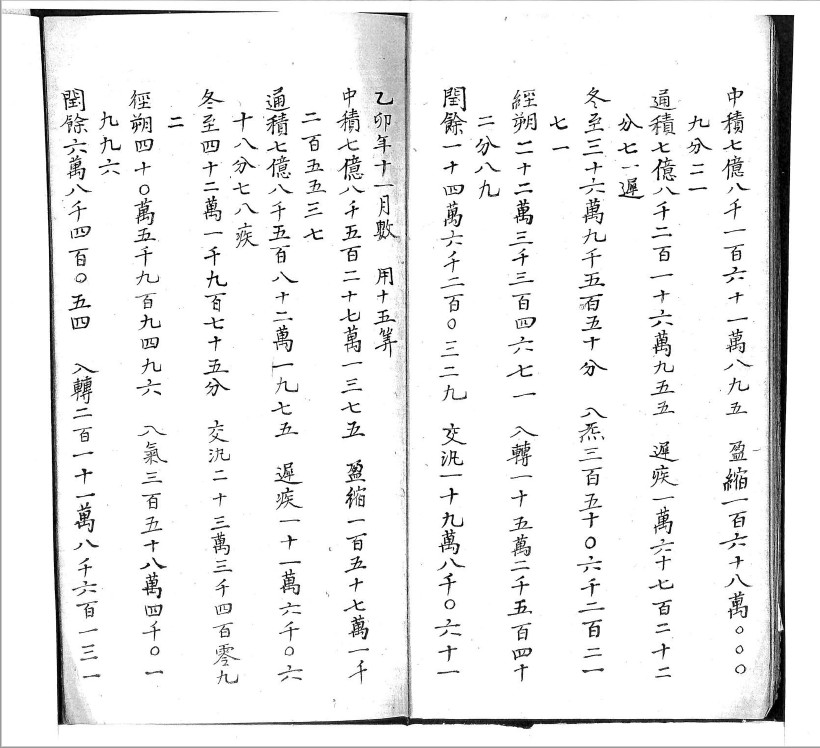 中積七億八千一百六十一萬八九五　盈縮一百六十八萬〇〇〇
九分二一
通積七億八千二百一十六萬九五五　遲疾一萬六十七百二十二
分七一遲
冬至三十六萬九千五百五十分　入炁三百五十〇六千二百二一
七一
經朔二十二萬三千三百四六七一　入轉一十五萬二千五百四十
二分八九
閏餘一十四萬六千二百〇三二九　交汎一十九萬八千〇六十一
乙卯年十一月數　用十五筭
中積七億八千五百二十七萬一三七五　盈縮一百五十七萬一千
二百五五三七
通積七億八千五百八十二萬一九七五　遲疾一十一萬六千〇六
十八分七八疾
冬至四十二萬一千九百七十五分　交汎二十三萬三千四百零九
二
經朔四十〇萬五千九百九四九六　入氣三百五十八萬四千〇一
九九六
閏餘六萬八千四百〇五四　入轉二百一十一萬八千六百一三一